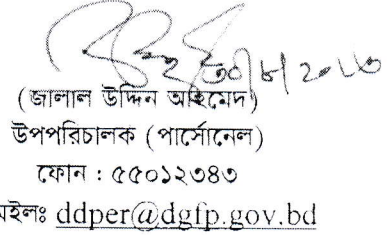 ৩০/৮/২০১৬
(জালাল উদ্দিন আহমেদ)
উপপরিচালক (পার্সোনেল)
ফোন : ৫৫০১২৩৪৩
মইলঃ ddper@dgfp.gov.bd